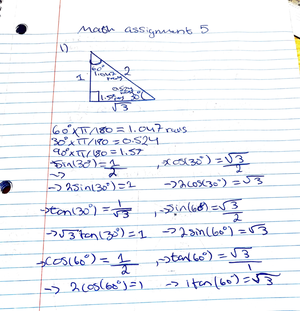 Math assignment 5
1)
60°
1.047
1
2
30°
√3
60° x π/180 = 1.047 rads
30° x π/180 = 0.524
90° x π/180 = 1.57
sin(30°) = 1/2 , cos(30°) = √3/2
→
→ 2sin(30°) = 1 → 2cos(30°) = √3
→ tan(30°) = 1/√3 , sin(60°) = √3/2
→ √3 tan(30°) = 1 → 2sin(60°) = √3
→ cos(60°) = 1/2 , → tan(60°) = √3/1
→ 2cos(60°) = 1 → 1tan(60°) = √3